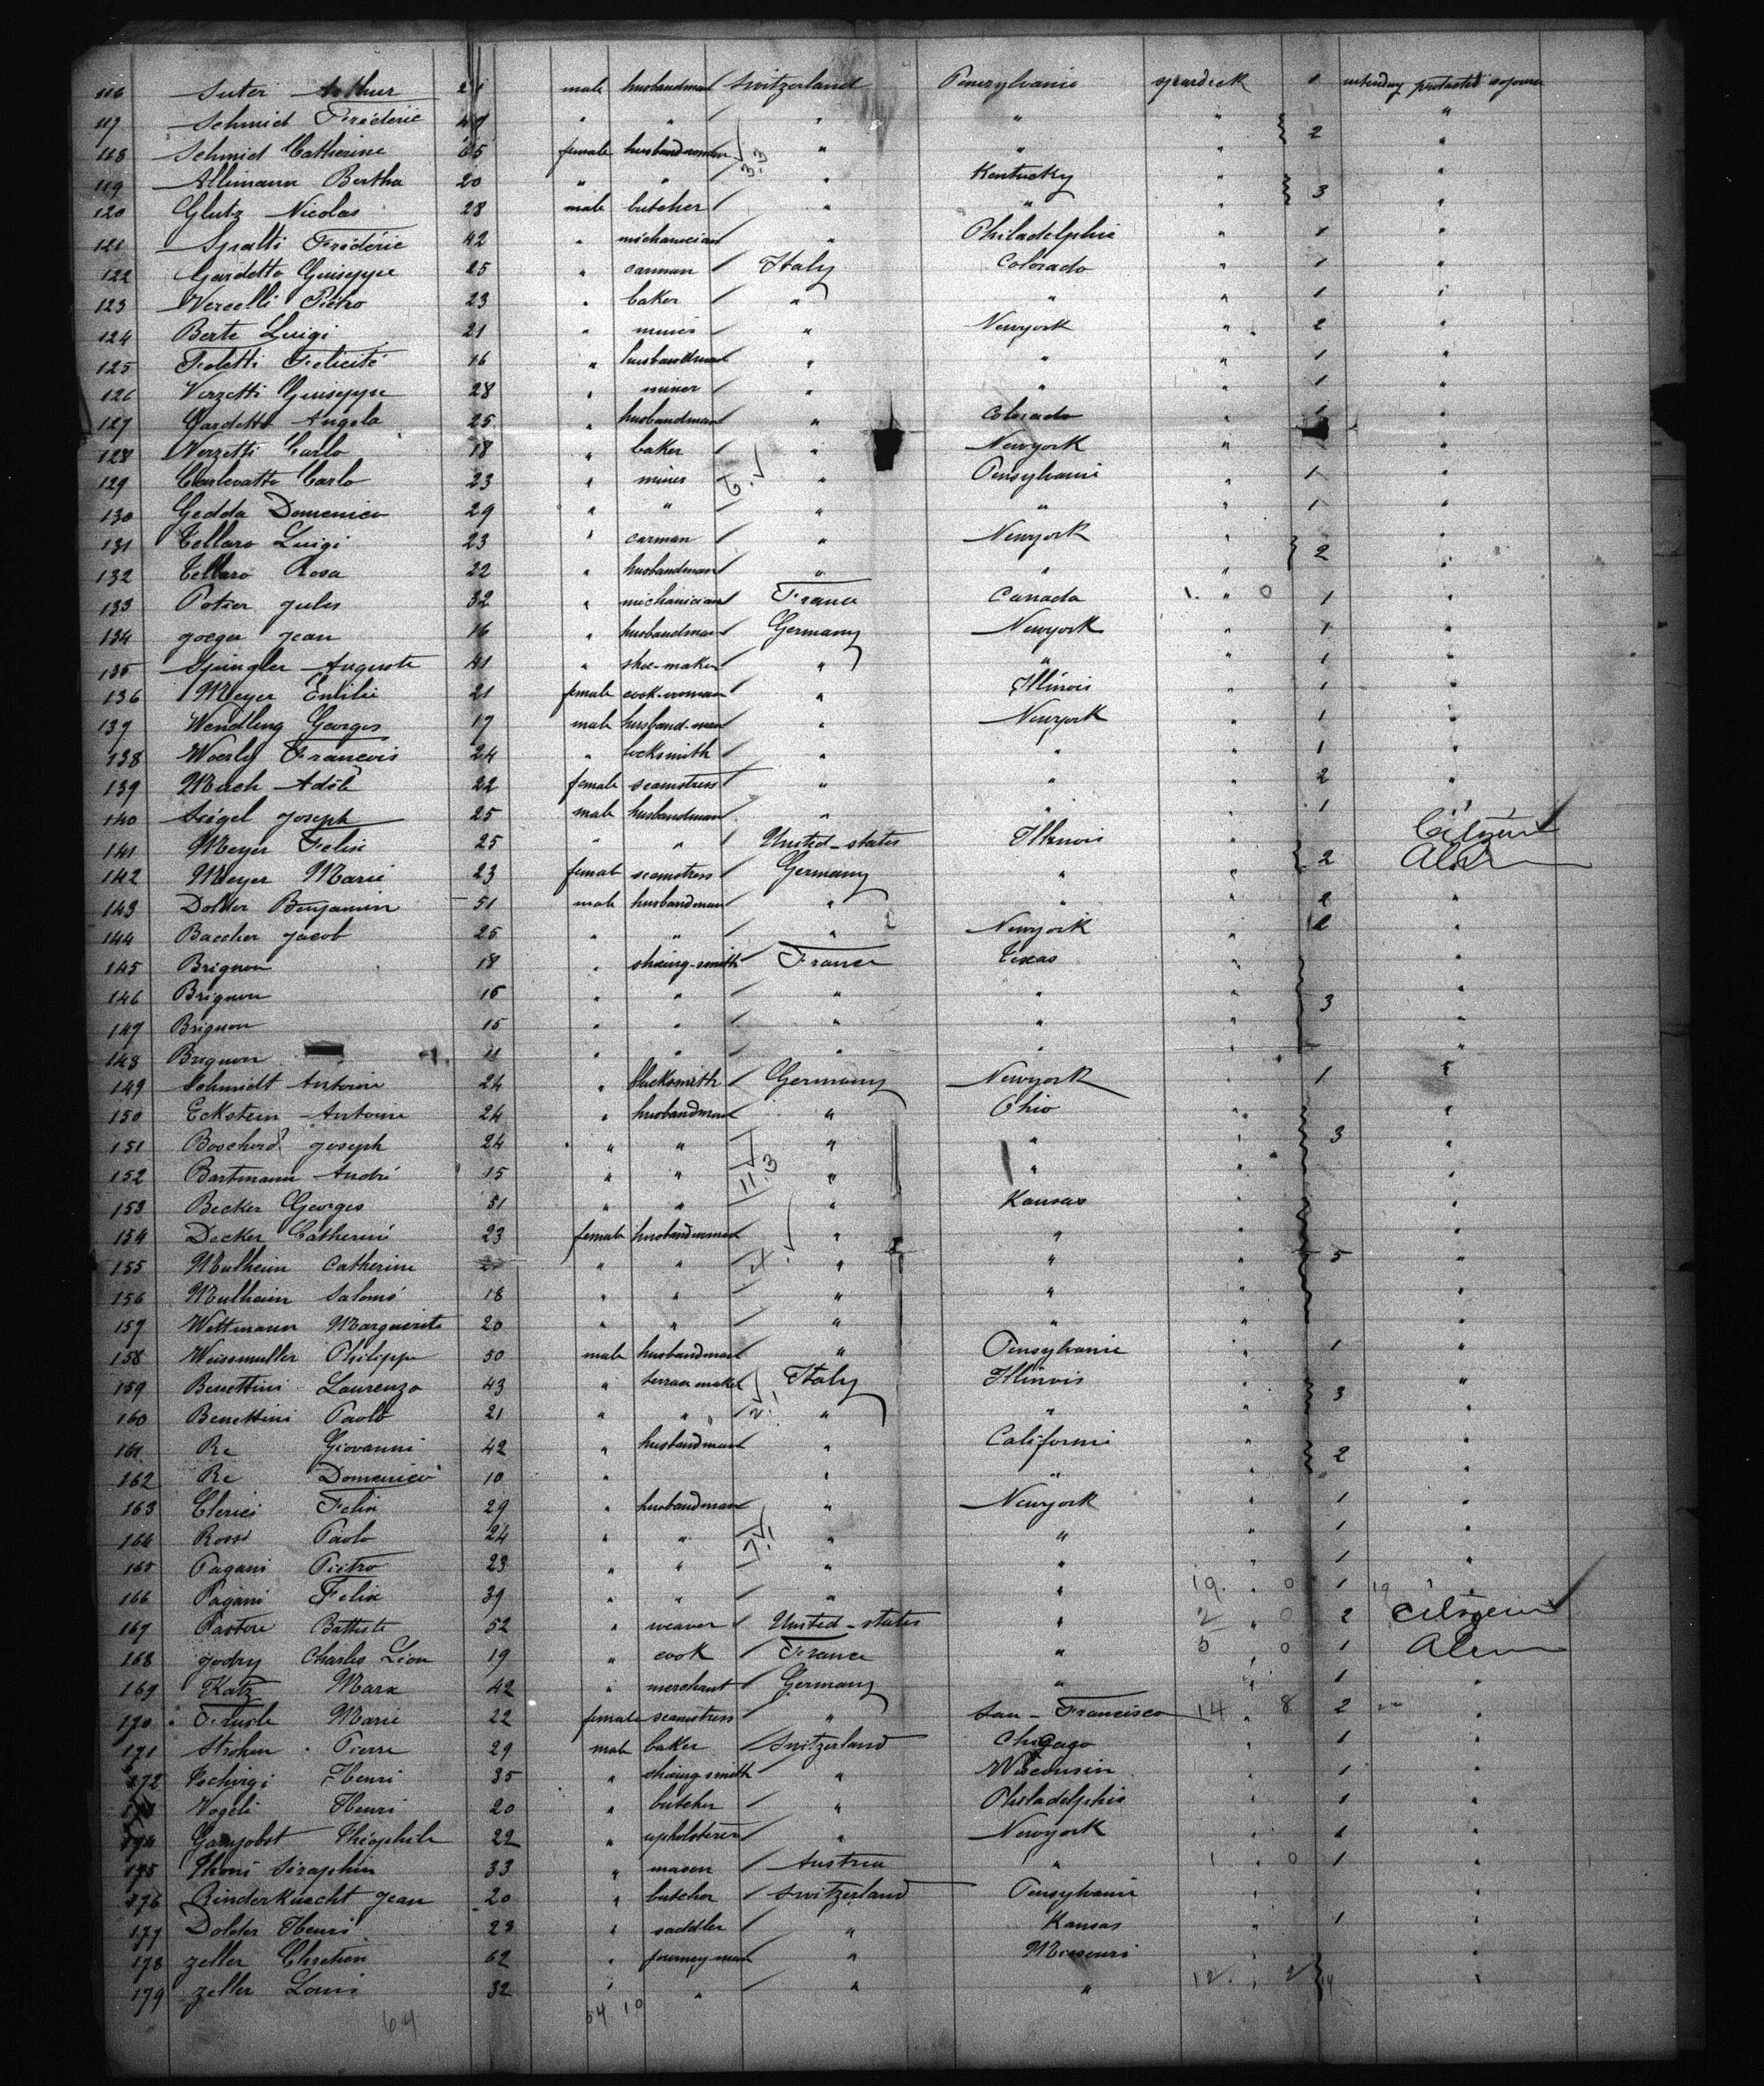 116 Suter Arthur 21 male husbandman Switzerland Pensylvanie spardeck 1 intending protracted sojourn
117 Schmid Frédéric " " " " " "
118 Schmid Catherine 65 female husbandwoman " " " 2 "
119 Allimann Bertha 20 " " " Kentucky " "
120 Glutz Nicolas 28 male butcher " " " 3 "
121 Spalti Frédéric 42 " michanician " Philadelphie " 1 "
122 Gardetto Guiseppe 25 " carman Italy Colorado " 1 "
123 Vercelli Piétro 23 " baker " " " 1 "
124 Berte Luigi 21 " miner " Newyork " 2 "
125 Foletti Felicité 16 " husbandman " " " 1 "
126 Verzetti Guiseppe 28 " miner " " " 1 "
127 Gardetto Angelo 25 " husbandman " Colorado " 1 "
128 Verzetti Carlo 18 " baker " Newyork " "
129 Carlevatto Carlo 23 " miner " Pensylvani " 1 "
130 Gedda Domenico 29 " " " " " 1 "
131 Tellaro Luigi 23 " carman " Newyork " "
132 Tellaro Rosa 22 " husbandman " " " 2 "
133 Potier Jules 32 " michanician France Canada 1. " 0 1 "
134 Joeger Jean 16 " husbandman Germany Newyork " 1 "
135 Spingler Auguste 41 " shoe-maker " " " 1 "
136 Meyer Emilie 21 female cook-woman " Illinois " 1 "
137 Wendling Georges 17 male husband-man " Newyork " 1 "
138 Woerly Francois 24 " locksmith " " " 1 "
139 Much Adèle 22 female seamstress " " " 2 "
140 Siégel Joseph 25 male husbandman " " 1
141 Meyer Felix 25 " " United-states Illinois " Citizen
142 Meyer Marie 23 femal seamstress Germany " " 2 Alien
143 Dolder Benjamin 51 male husbandman " " " "
144 Baecher Jacob 25 " " " Newyork " "
145 Brignon 18 " shoeing-smith France Texas "
146 Brignon 16 " " " " " 3 "
147 Brignon 15 " " " " " "
148 Brignon 11 " " " " "
149 Schmidt Antoine 24 " blacksmith Germany Newyork " 1 "
150 Eckstein Antoine 24 " husbandman " Ohio " "
151 Boscherd Joseph 24 " " " " " 3 "
152 Bartmann André 15 " " " " " "
153 Becker Georges 51 " " " Kansas " "
154 Decker Catherine 23 female husbandwoman " " " "
155 Mulheim Catherine " " " " " 5 "
156 Mulheim Salomé 18 " " " " " "
157 Wettmann Marguerite 20 " " " " " "
158 Weissmuller Philippe 50 male husbandman " Pensylvanie " 1 "
159 Benettini Laurenzo 43 " terrace maker Italy Illinois " "
160 Benettini Paolo 21 " " " " " 3 "
161 Re Giovanni 42 " husbandman " Californi " "
162 Re Domenico 10 " " " " 2 "
163 Clerici Felix 29 " husbandman " Newyork " 1 "
164 Rossi Paolo 24 " " " " " 1 "
165 Pagani Piétro 23 " " " " " 1 "
166 Pagani Felix 39 " " " " 19. " 0 1 19 "
167 Pastore Battiste 52 " weaver United-states " 2 " 0 2 Citizen
168 Godry Charles Léon 19 " cook France " 5 " 0 1 Alien
169 Katz Marx 42 " merchant Germany " " 1 "
170 Frush Marie 22 female seamstress " San-Francisco 14 " 8 2 "
171 Strohen Pierre 29 male baker Switzerland Chicago " 1 "
172 Tschirgi Henri 35 " shoeing smith " Wisconsin " 1 "
Vogeli Henri 20 " butcher " Philadelphie " 1 "
174 Gamjobst Théophile 22 " upholsterer " Newyork " 1 "
175 Thoni Séraphin 33 " mason Austria " 1 " 0 1 "
176 Rinderknecht Jean 20 " butcher Switzerland Pensylvanie " "
177 Dolder Henri 23 " saddler " Kansas " 1 "
178 Zeller Chretien 62 " journeyman " Missouri " "
179 Zeller Louis 32 " " " " 12. " 2 "
64 54 10